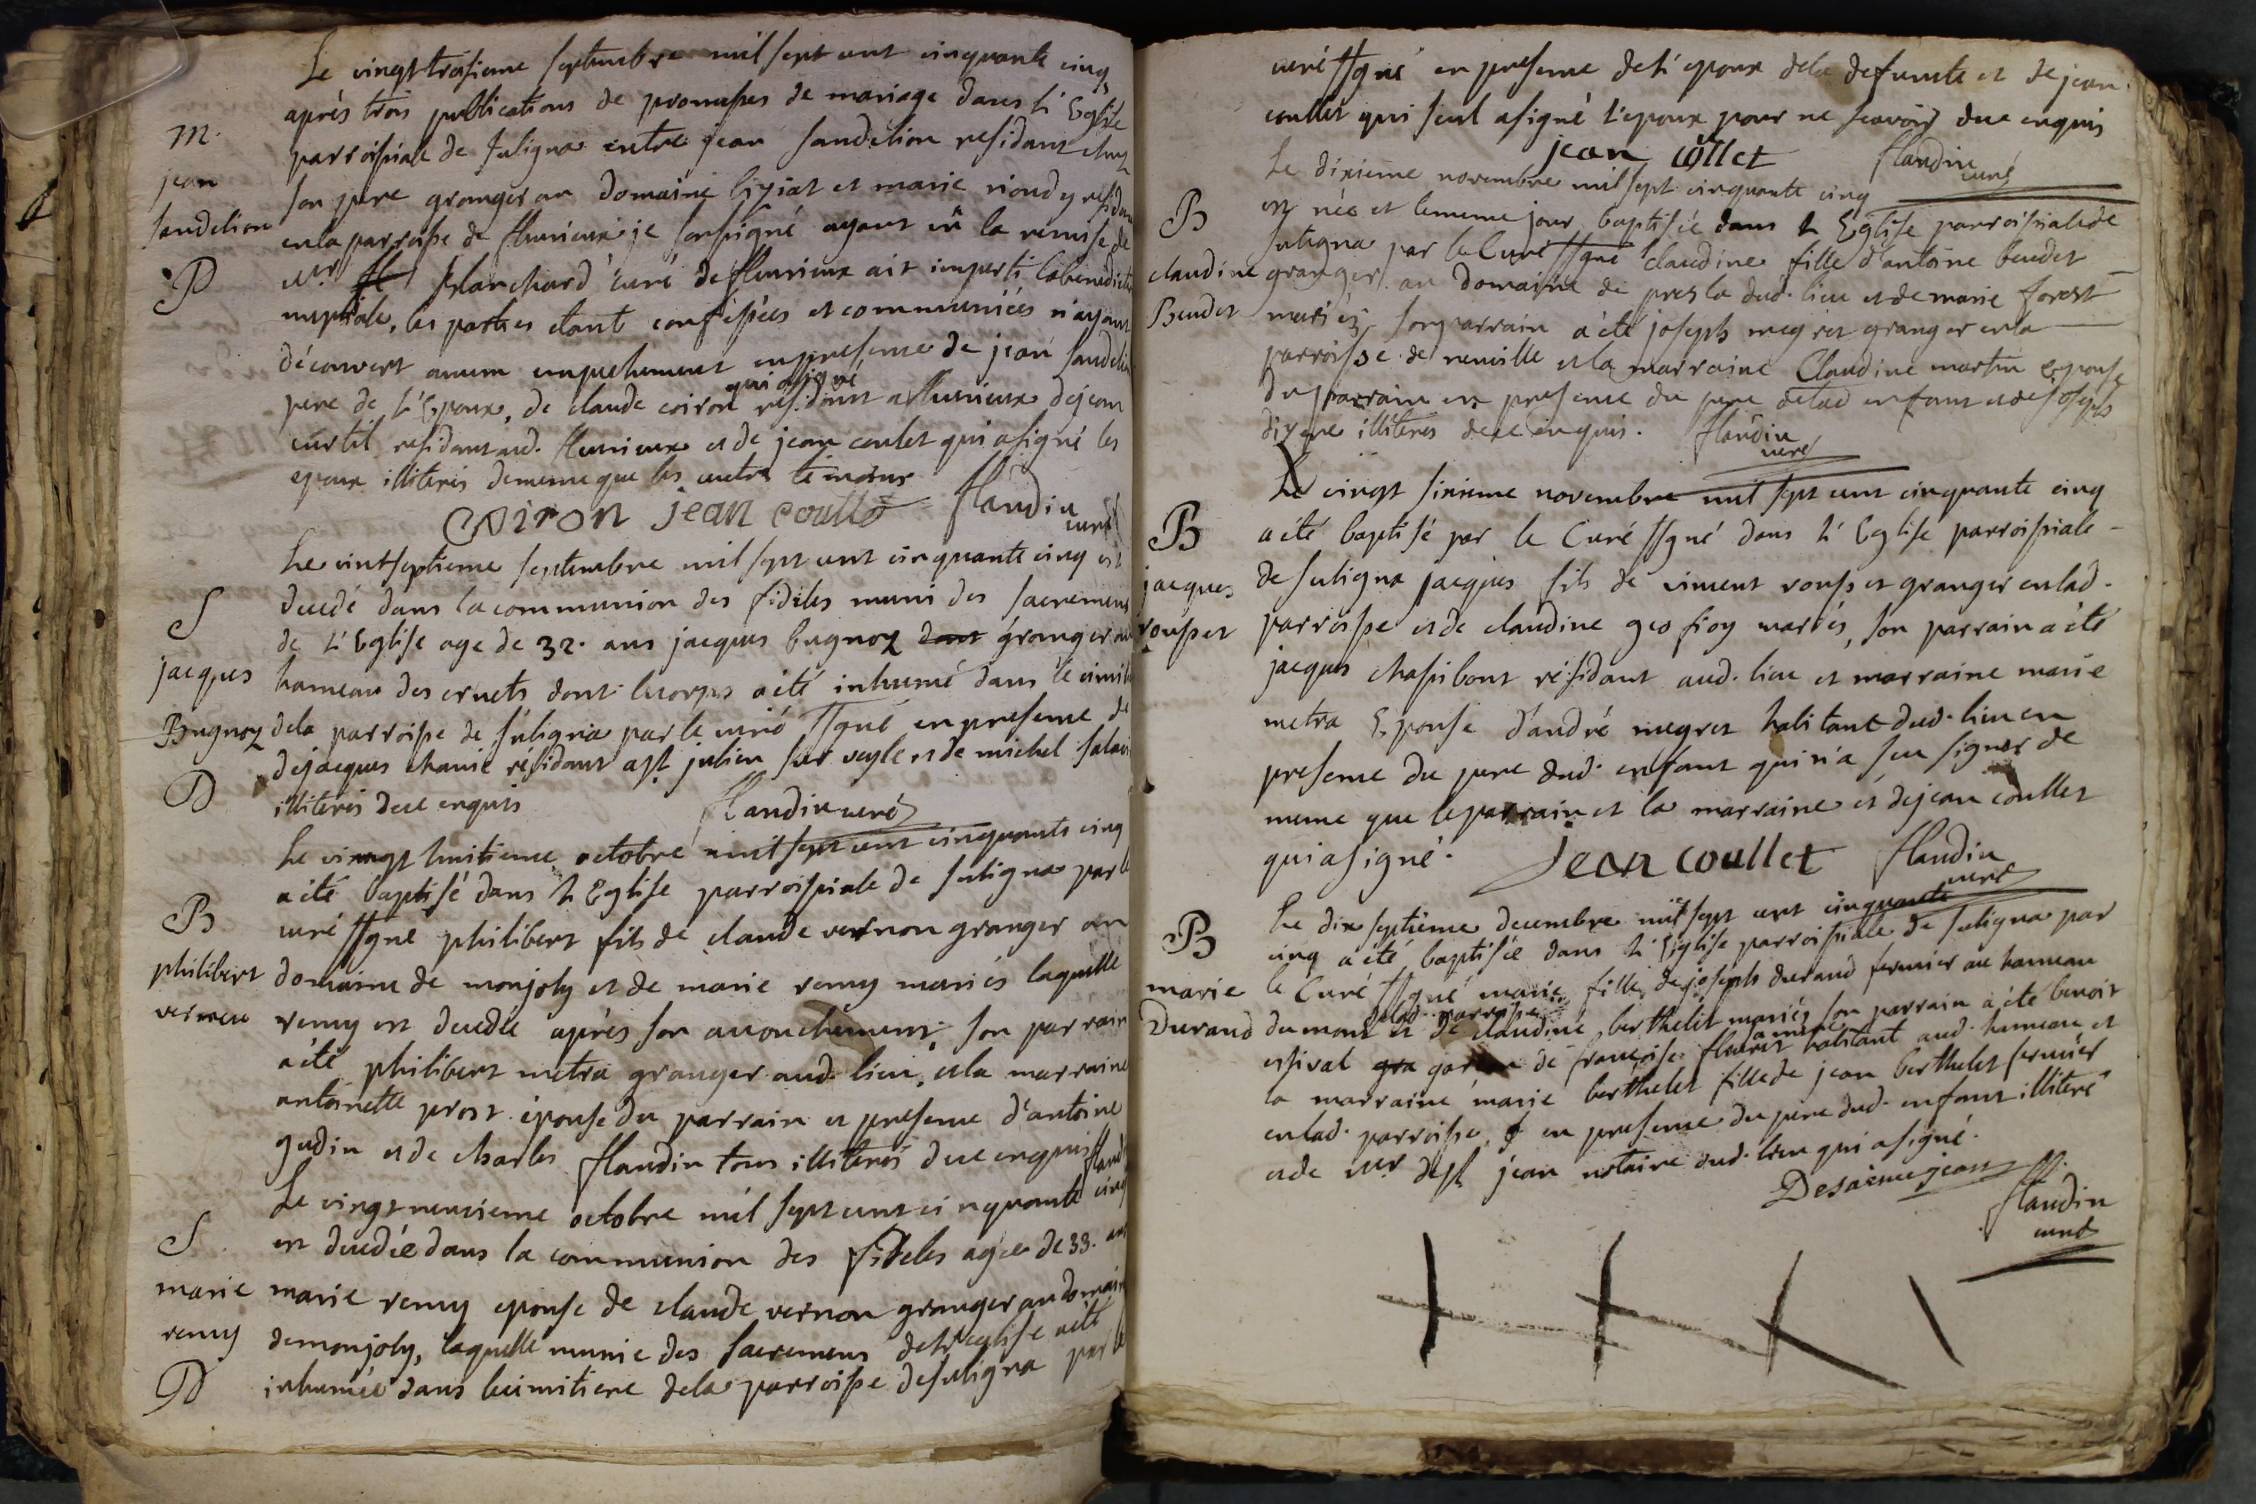 Le vingt troisieme septembre mil sept cent cinquante cinq
après trois publications de promesses de mariage dans l'Eglise
m.
parroissiale de Suligna entre jean sandelion residant chez
jean
son pere granger au domaine liziat et marie riond y residante
sandelion
en la parroisse de fleurieux je soussigné ayant vu la remise de
P
Mr. planchard curé de fleurieux ait imparti la benediction
nuptiale, les parties etant confessées et communiées n'ayant
découvert aucun empechement en presence de jean sandelion
pere de l'Epoux, de claude coiron qui a signé residant a fleurieux de jean
curtil residant aud. fleurieux et de jean coulet qui a signé les
epoux illiterés de meme que les autres temoins
coiron jean coullet flandin curé
Le vint septieme septembre mil sept cent cinquante cinq est
S
decedé dans la communion des fideles muni des sacremens
de l'Eglise age de 32. ans jacques bugnoz granger au
jacques
hameau des cruets dont le corps a été inhumé dans le cimitiere
Bugnoz
dela parroisse de suligna par le curé ssgné en presence de
de jacques chanie résidant a st julien sur veyle et de michel
D
illiterés de ce enquis flandin curé
Le vingt huitieme octobre mil sept cent cinquante cinq
a été baptisé dans l'Eglise parroissiale de suligna par le
B
curé ssgné philibert fils de claude vernon granger au
philibert
domaine de monjoly et de marie remy mariés laquelle
vernon
remy est decedée après son accouchement, son parrain
a été philibert metra granger aud. lieu, et la marraine
antoinette prost épouse du parrain en presence d'antoine
gudin et de charles flandin tous illiterés de ce enquis flandin
Le vingt neuvieme octobre mil sept cent cinquante cinq
S
est decedée dans la communion des fideles agée de 33. ans
marie
marie remy epouse de claude vernon granger au domaine
remy
de monjoly, laquelle munie des sacremens de l'eglise a été
D
inhumée dans le cimitiere dela parroisse de suligna par le
curé ssgné en presence de l'epoux dela defunte et de jean
coullet qui seul a signé l'epoux pour ne scavoir de ce enquis
jean côllet flandin curé
Le dixieme novembre mil sept cinquante cinq
B
est née et le meme jour baptisée dans l'Eglise parroissiale de
suligna par le Curé ssgné claudine fille d'antoine beudet
claudine
granger au domaine de presla dud. lieu et de marie forest
Beudet
mariés, son parrain a été joseph megret granger en la
parroisse de neuville et la marraine Claudine martin Epouse
du parrain en presence du pere de lad enfant et de joseph
illiteres de ce enquis. flandin curé
Le vingt sixieme novembre mil sept cent cinquante cinq
B
a été baptisé par le Curé ssgné dans l'Eglise parroissiale
jacques
de suligna jacques fils de vincent rousset granger en lad.
rousset
parroisse et de claudine geofroy mariés, son parrain a été
jacques chassibout résidant aud. lieu et marraine marie
metra Epouse d'andré megret habitant dud. lieu en
presence du pere dud. enfant qui n'a sceu signer de
meme que le parrain et la marraine et de jean coullet
qui a signé. Jean coullet flandin curé
Le dix septieme decembre mil sept cent cinquante
B
cinq a été baptisée dans l'Eglise parroissiale de suligna par
marie
le Curé ssgné marie fille de joseph durand fermier au hameau
Durand
du mont de lad. parroisse et de claudine berthelet mariés son parrain a été benoit
estival de françoise fleuret sa mere habitant aud. hameau et
la marraine marie berthelet fille de jean berthelet fermier
en lad. parroisse, en presence du pere dud. enfant illiteré
et de Mr de st jean notaire dud. lieu qui a signé.
flandin curé